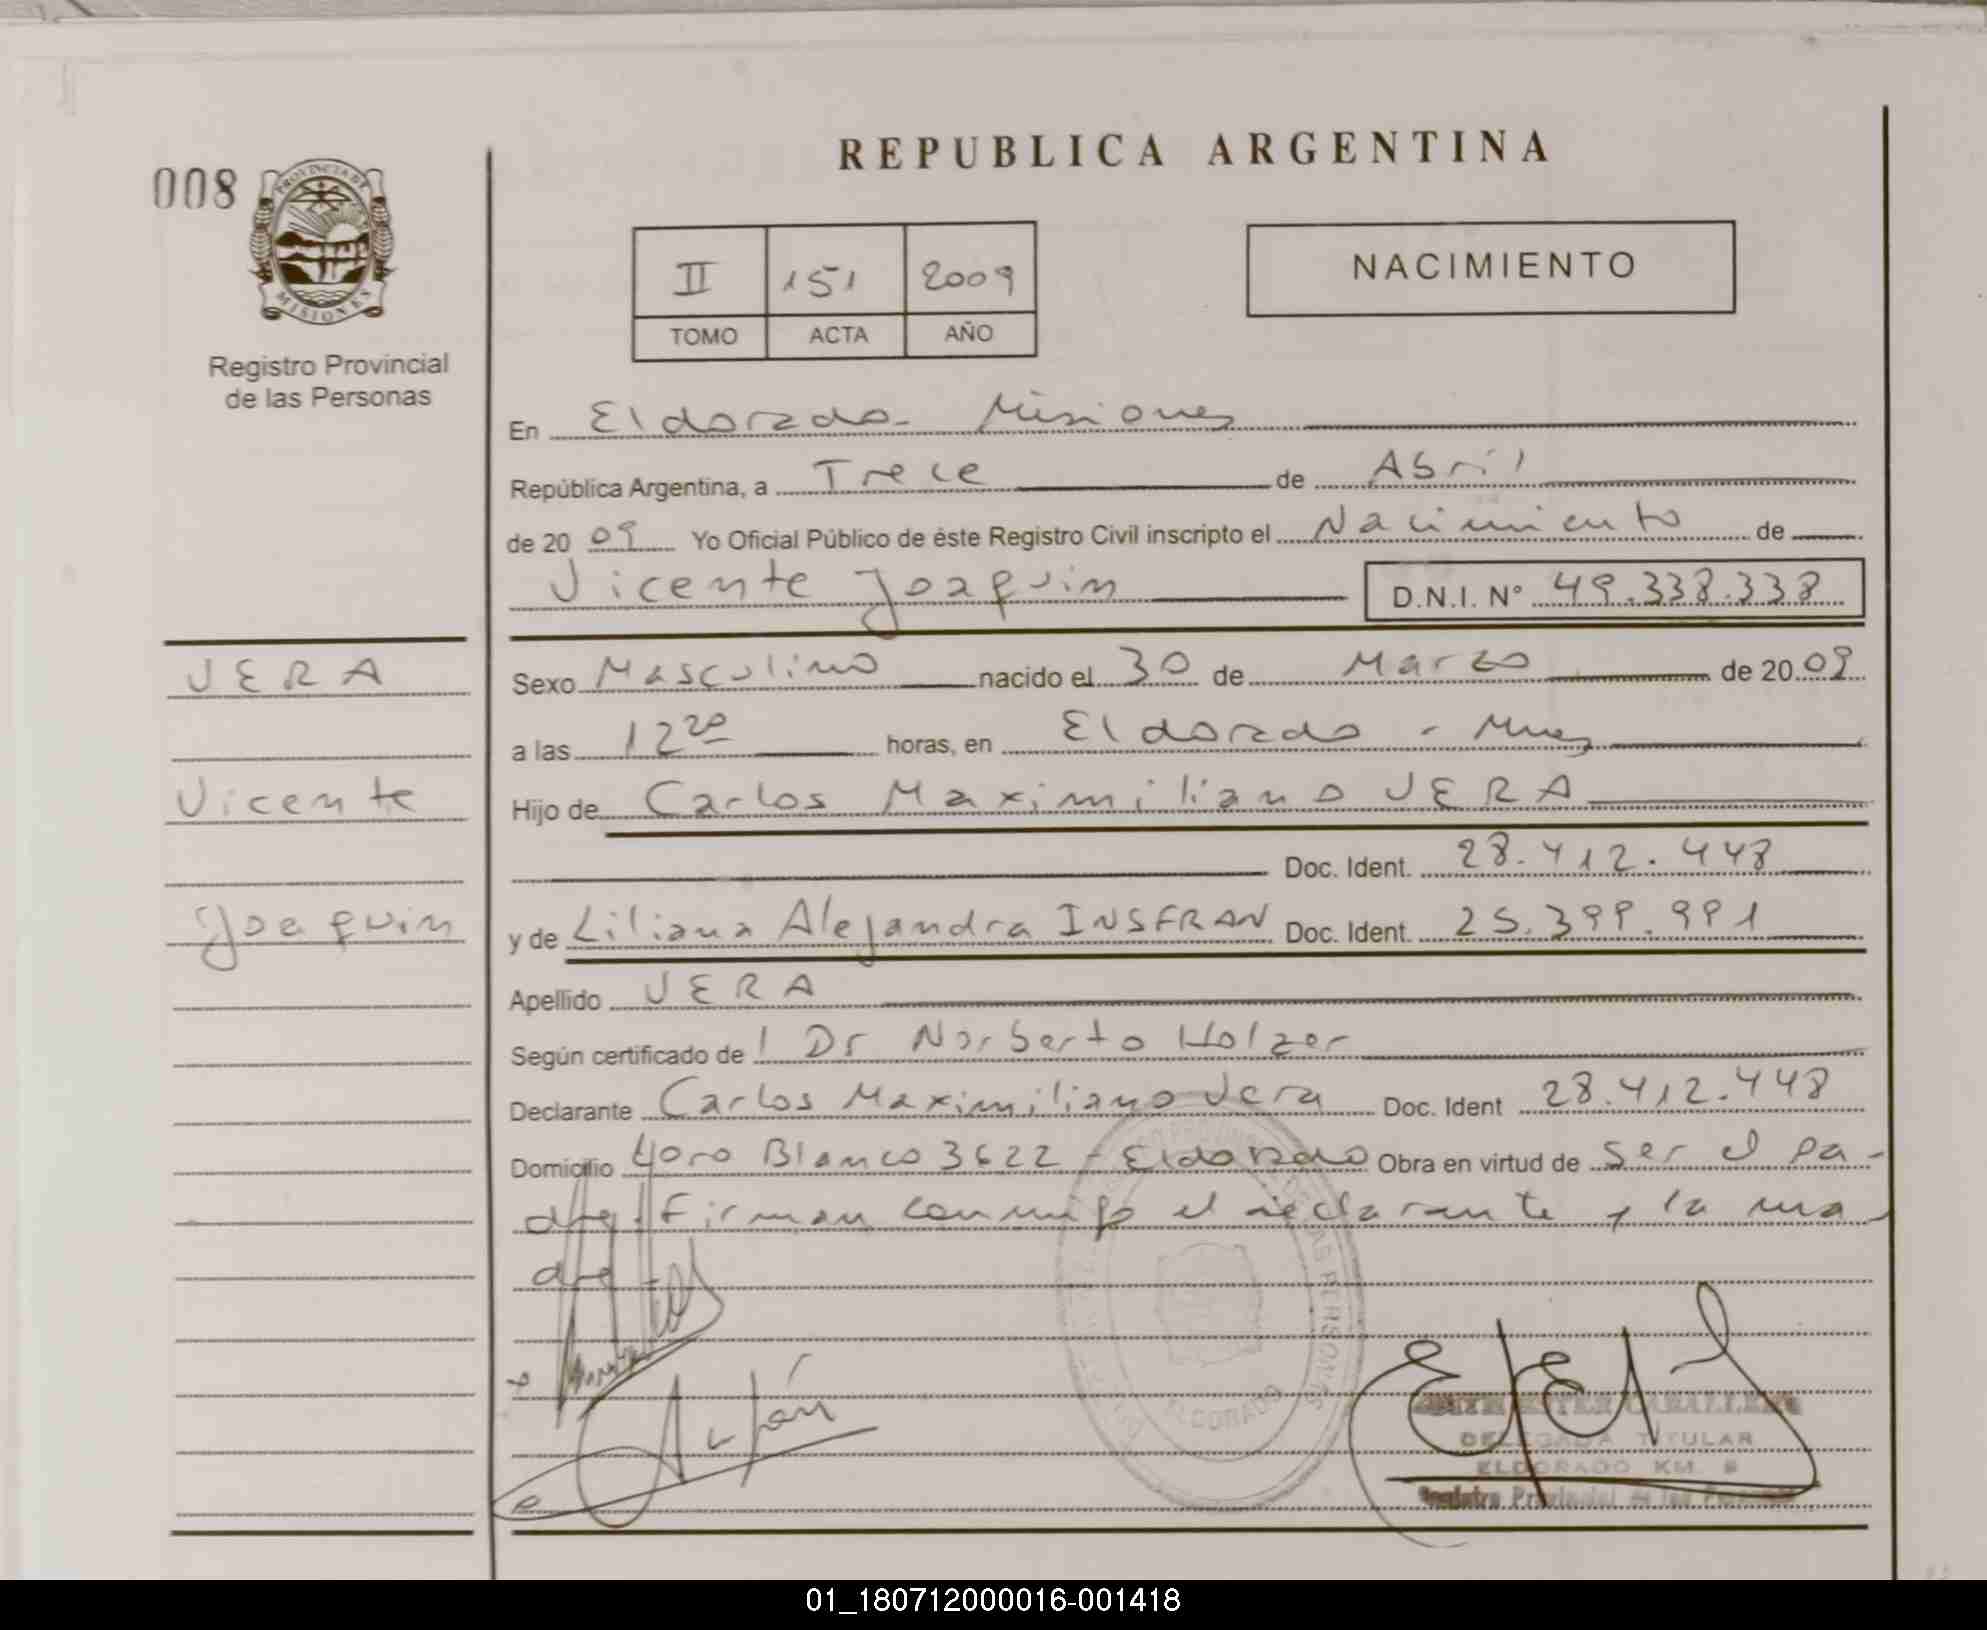 REPUBLICA ARGENTINA
008
PROVINCIA DE
MISIONES
Registro Provincial
de las Personas
II 151 2009
TOMO ACTA AÑO
NACIMIENTO
En Eldorado - Misiones
República Argentina, a Trece de Abril
de 2009 Yo Oficial Público de éste Registro Civil inscripto el Nacimiento de
Vicente Joaquin D.N.I. N° 49.338.338
VERA
Vicente
Joaquin
Sexo Masculino nacido el 30 de Marzo de 2009
a las 12 20 horas, en Eldorado - Mnes
Hijo de Carlos Maximiliano VERA
Doc. Ident. 28.412.448
y de Liliana Alejandra INSFRAN Doc. Ident. 25.399.991
Apellido VERA
Según certificado de l Dr Norberto Holzer
Declarante Carlos Maximiliano Vera Doc. Ident 28.412.448
Domicilio Loro Blanco 3622 - Eldorado Obra en virtud de Ser el pa-
dre. Firman conmigo el declarante y la ma-
dre
ELDORADO
ESTER CABALLERO
DELEGADA TITULAR
ELDORADO KM.
Registro Provincial de las Personas
01_180712000016-001418